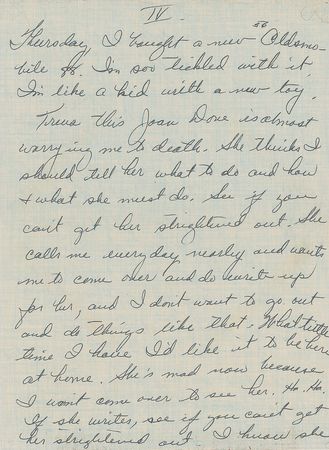 IV.
Thursday, I bought a new "88" Oldsmo-
bile. I'm soo tickled with it
I'm like a kid with a new toy.
Treva this Joan Dove is almost
worrying me to death. She thinks I
should tell her what to do and how
+ what she must do. See if you
can't get her strightened out. She
calls me everyday nearly and wants
me to come over and do write up
for her, and I don't want to go out
and do things like that. What little
time I have I'd like it to be here
at home. She's mad now because
I won't come over to see her. Ha. Ha.
If she writes, see if you can't get
her strightened out. I know she